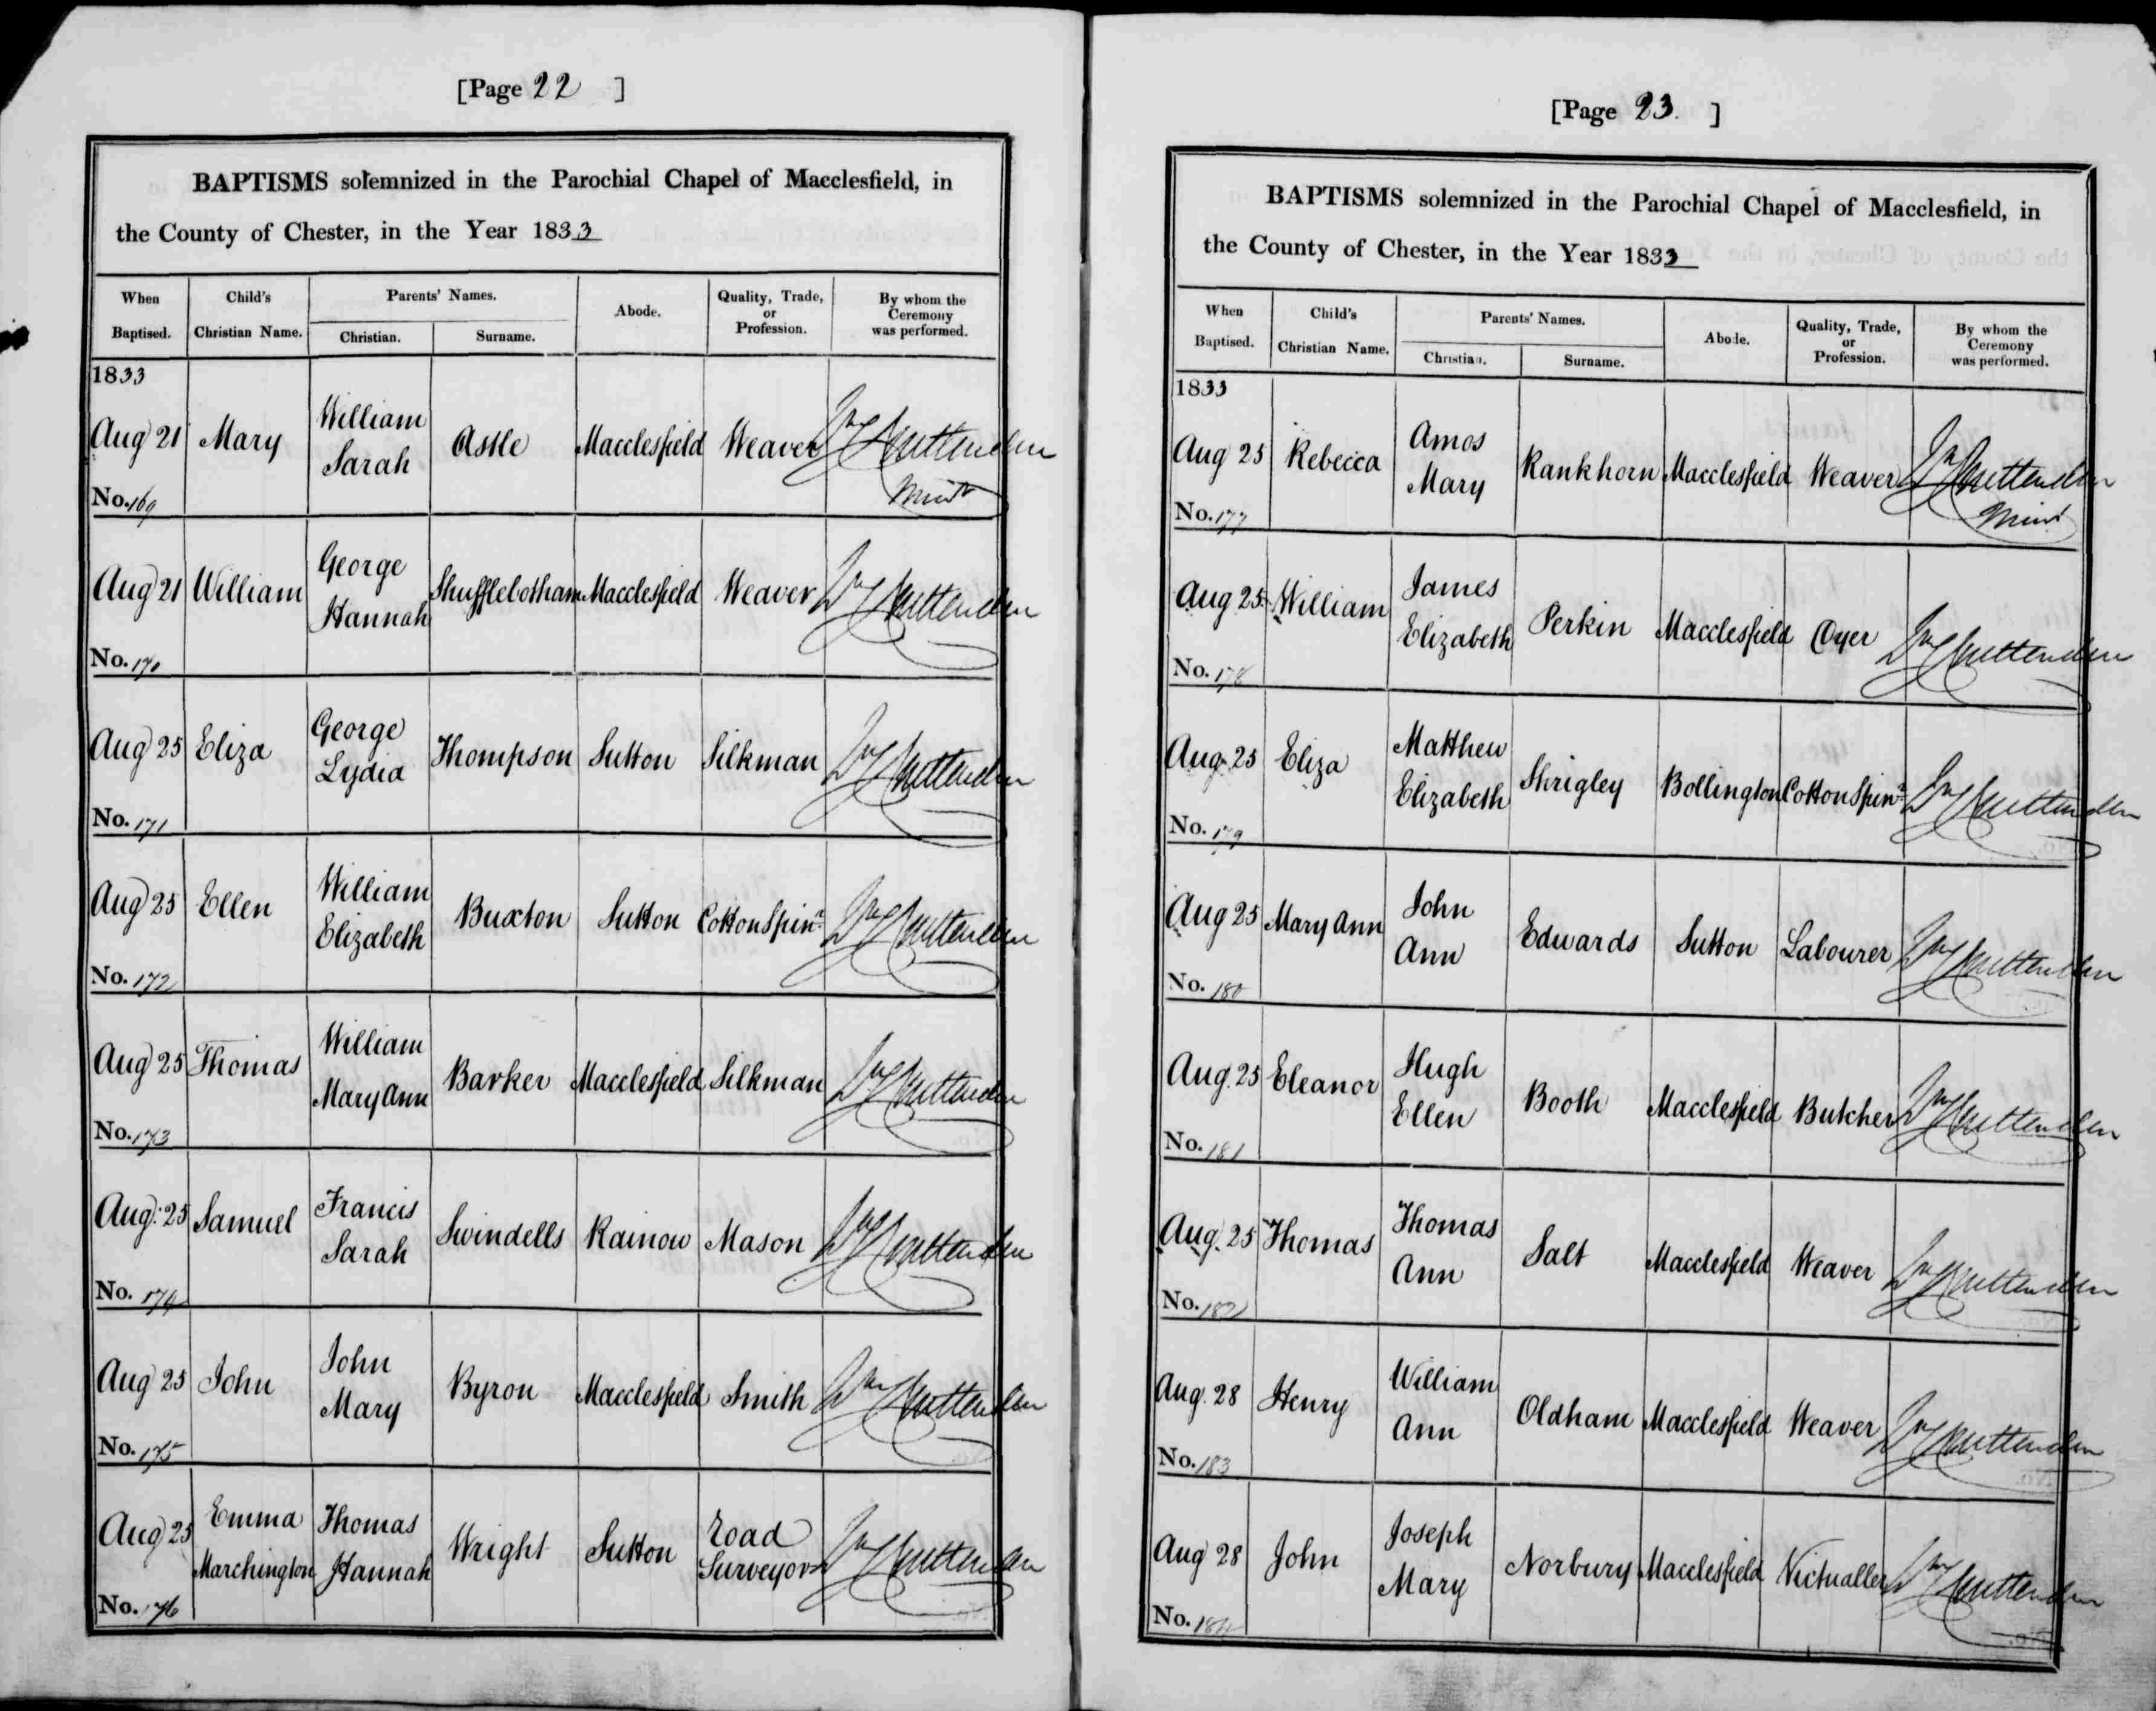 [Page 22 ]
BAPTISMS solemnized in the Parochial Chapel of Macclesfield, in
the County of Chester, in the Year 1833
When Baptised. Child's Christian Name. Parents' Names. Christian. Surname. Abode. Quality, Trade, or Profession. By whom the Ceremony was performed.
1833
Aug 21 Mary William Sarah Astle Macclesfield Weaver Wm Cruttenden Minr
No. 169
Aug 21 William George Hannah Shufflebotham Macclesfield Weaver Wm Cruttenden
No. 170
Aug 25 Eliza George Lydia Thompson Sutton Silkman Wm Cruttenden
No. 171
Aug 25 Ellen William Elizabeth Buxton Sutton Cotton Spinr Wm Cruttenden
No. 172
Aug 25 Thomas William Mary Ann Barker Macclesfield Silkman Wm Cruttenden
No. 173
Aug: 25 Samuel Francis Sarah Swindells Rainow Mason Wm Cruttenden
No. 174
Aug 25 John John Mary Byron Macclesfield Smith Wm Cruttenden
No. 175
Aug 25 Emma Marchington Thomas Hannah Wright Sutton Road Surveyor Wm Cruttenden
No. 176
[Page 23. ]
BAPTISMS solemnized in the Parochial Chapel of Macclesfield, in
the County of Chester, in the Year 1833
When Baptised. Child's Christian Name. Parents' Names. Christian. Surname. Abode. Quality, Trade, or Profession. By whom the Ceremony was performed.
1833
Aug 25 Rebecca Amos Mary Rankhorn Macclesfield Weaver Wm Cruttenden Minr
No. 177
Aug. 25 William James Elizabeth Perkin Macclesfield Dyer Wm Cruttenden
No. 178
Aug. 25 Eliza Matthew Elizabeth Shrigley Bollington Cotton Spinr Wm Cruttenden
No. 179
Aug 25 Mary Ann John Ann Edwards Sutton Labourer Wm Cruttenden
No. 180
Aug. 25 Eleanor Hugh Ellen Booth Macclesfield Butcher Wm Cruttenden
No. 181
Aug. 25 Thomas Thomas Ann Salt Macclesfield Weaver Wm Cruttenden
No. 182
Aug. 28 Henry William Ann Oldham Macclesfield Weaver Wm Cruttenden
No. 183
Aug 28 John Joseph Mary Norbury Macclesfield Victualler Wm Cruttenden
No. 184